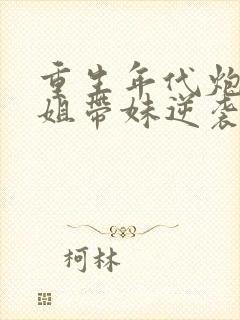 重生年代炮
姐带妹逆袭
柯林